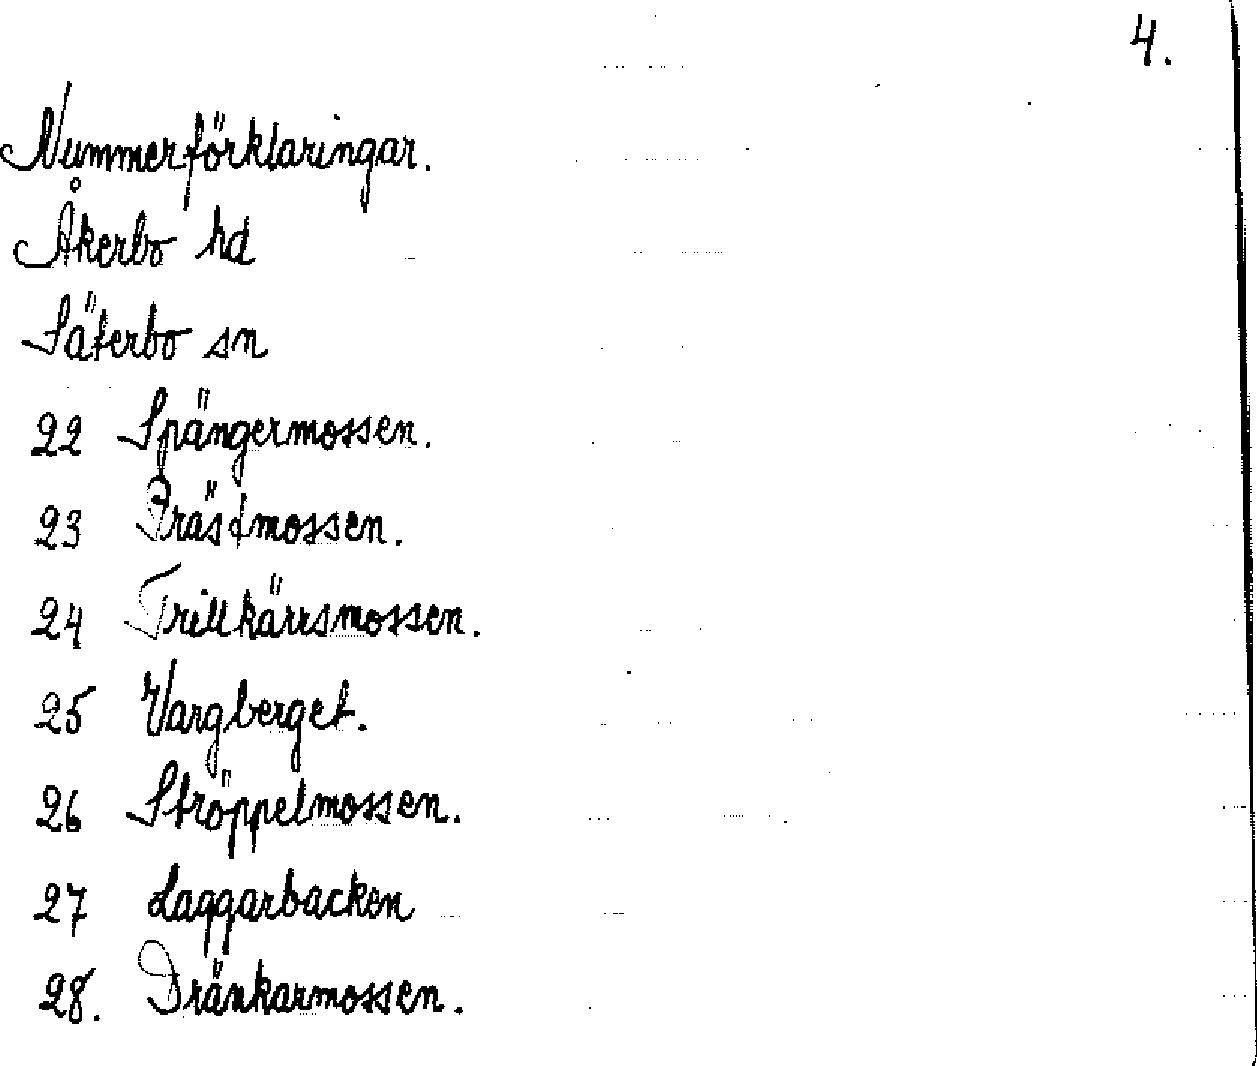 4.
Nummerförklaringar.
Åkerbo hd
Säterbo sn
22 Spängermossen.
23 Prästmossen.
24 Trillkärrsmossen.
25 Vargberget.
26 Ströppelmossen.
27 Laggarbacken
28. Dränkarmossen.